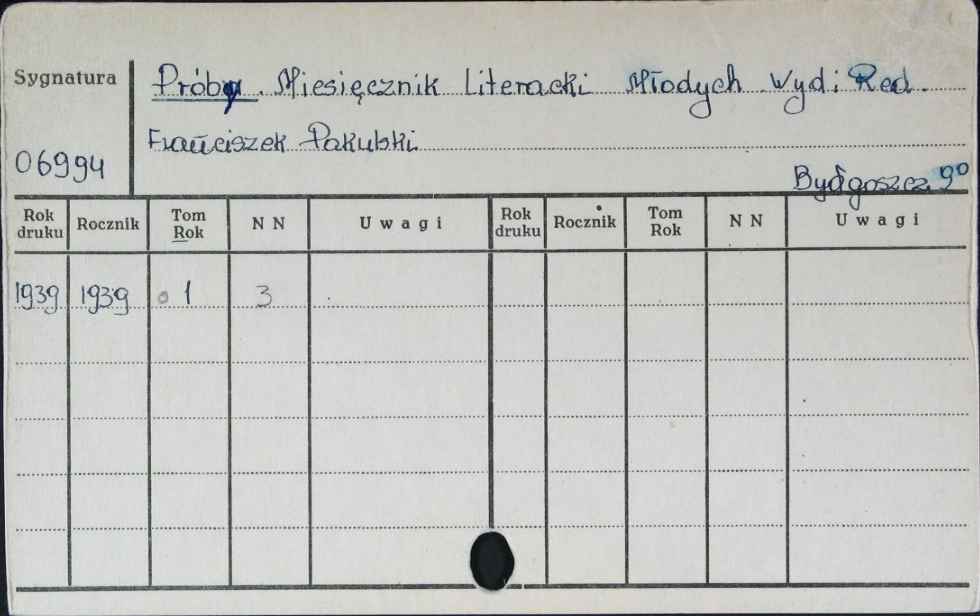 Sygnatura
Próby. Miesięcznik Literacki Młodych Wyd i Red.
Franciszek Pakulski
06994
Bydgoszcz 9°
Rok druku Rocznik Tom Rok N N Uwagi Rok druku Rocznik Tom Rok N N Uwagi
1939 1939 1 3